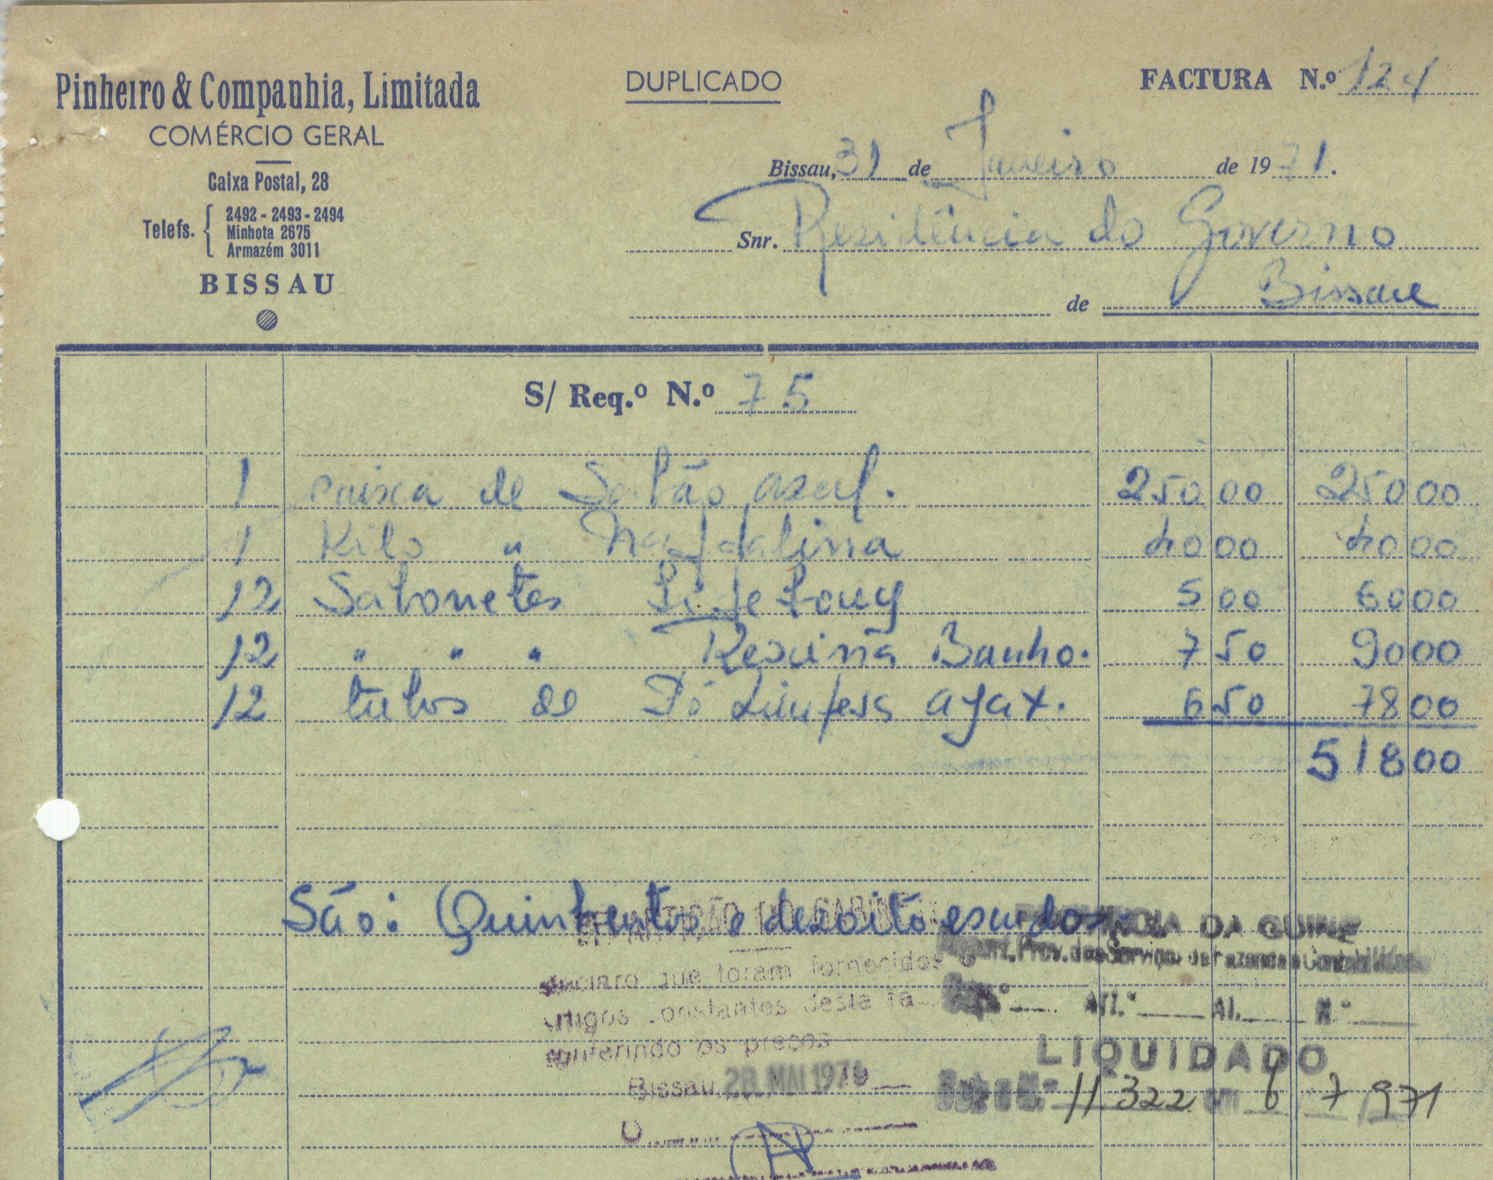 Pinheiro & Companhia, Limitada
COMÉRCIO GERAL
Caixa Postal, 28
Telefs. { 2492 - 2493 - 2494
Minhota 2675
Armazém 3011
BISSAU
DUPLICADO
FACTURA N.º 124
Bissau, 31 de Janeiro de 1971.
Snr. Residência do Governo
de Bissau
S/ Req.º N.º 75
1 caixa de Sabão azul. 250 00 250 00
1 Kilo " Naftalina 40 00 40 00
12 Sabonetes Lifebouy 5 00 60 00
12 " " " Rexina Banho. 7 50 90 00
12 tubos de Pó Limpesa ajax. 6 50 78 00
518 00
São: Quinhentos e dezoito escudos
que foram fornecidos
artigos constantes desta fa
conferindo os preços
Bissau, 28. MAI 1970
O
DA GUINE
Prov. dos Serviços de Fazenda e Contabilidade
Art.º Al. N.º
LIQUIDADO
11322 em 6 7 971